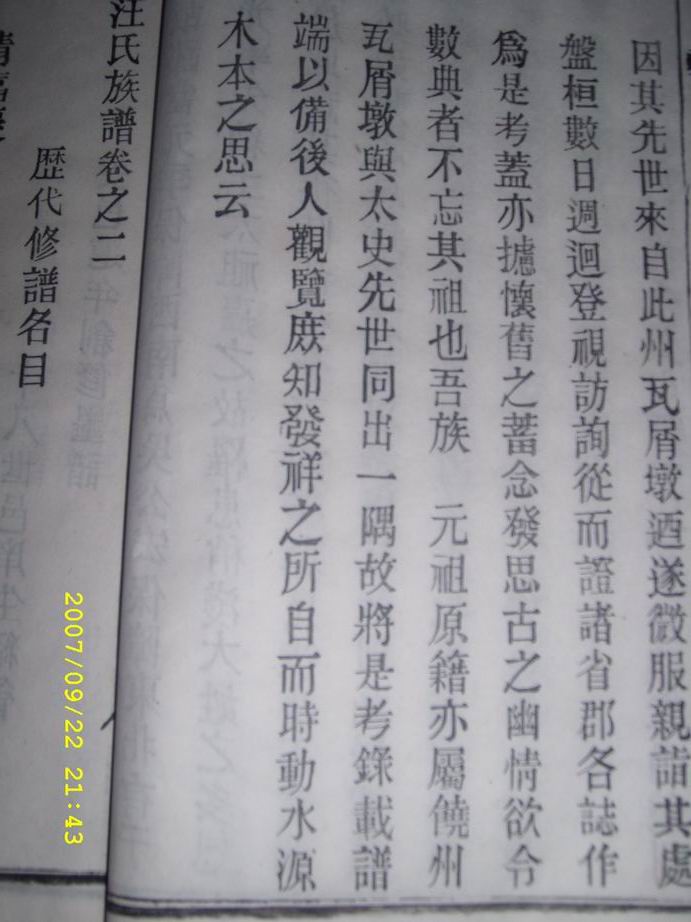 因其先世來自此州瓦屑墩迺遂微服親詣其處
盤桓數日週迴登視訪詢從而證諸省郡各誌作
爲是考蓋亦攄懷舊之蓄念發思古之幽情欲令
數典者不忘其祖也吾族　元祖原籍亦屬饒州
瓦屑墩與太史先世同出一隅故將是考錄載譜
端以備後人觀覽庶知發祥之所自而時動水源
木本之思云
汪氏族譜卷之二
歷代修譜名目
2007/09/22 21:43